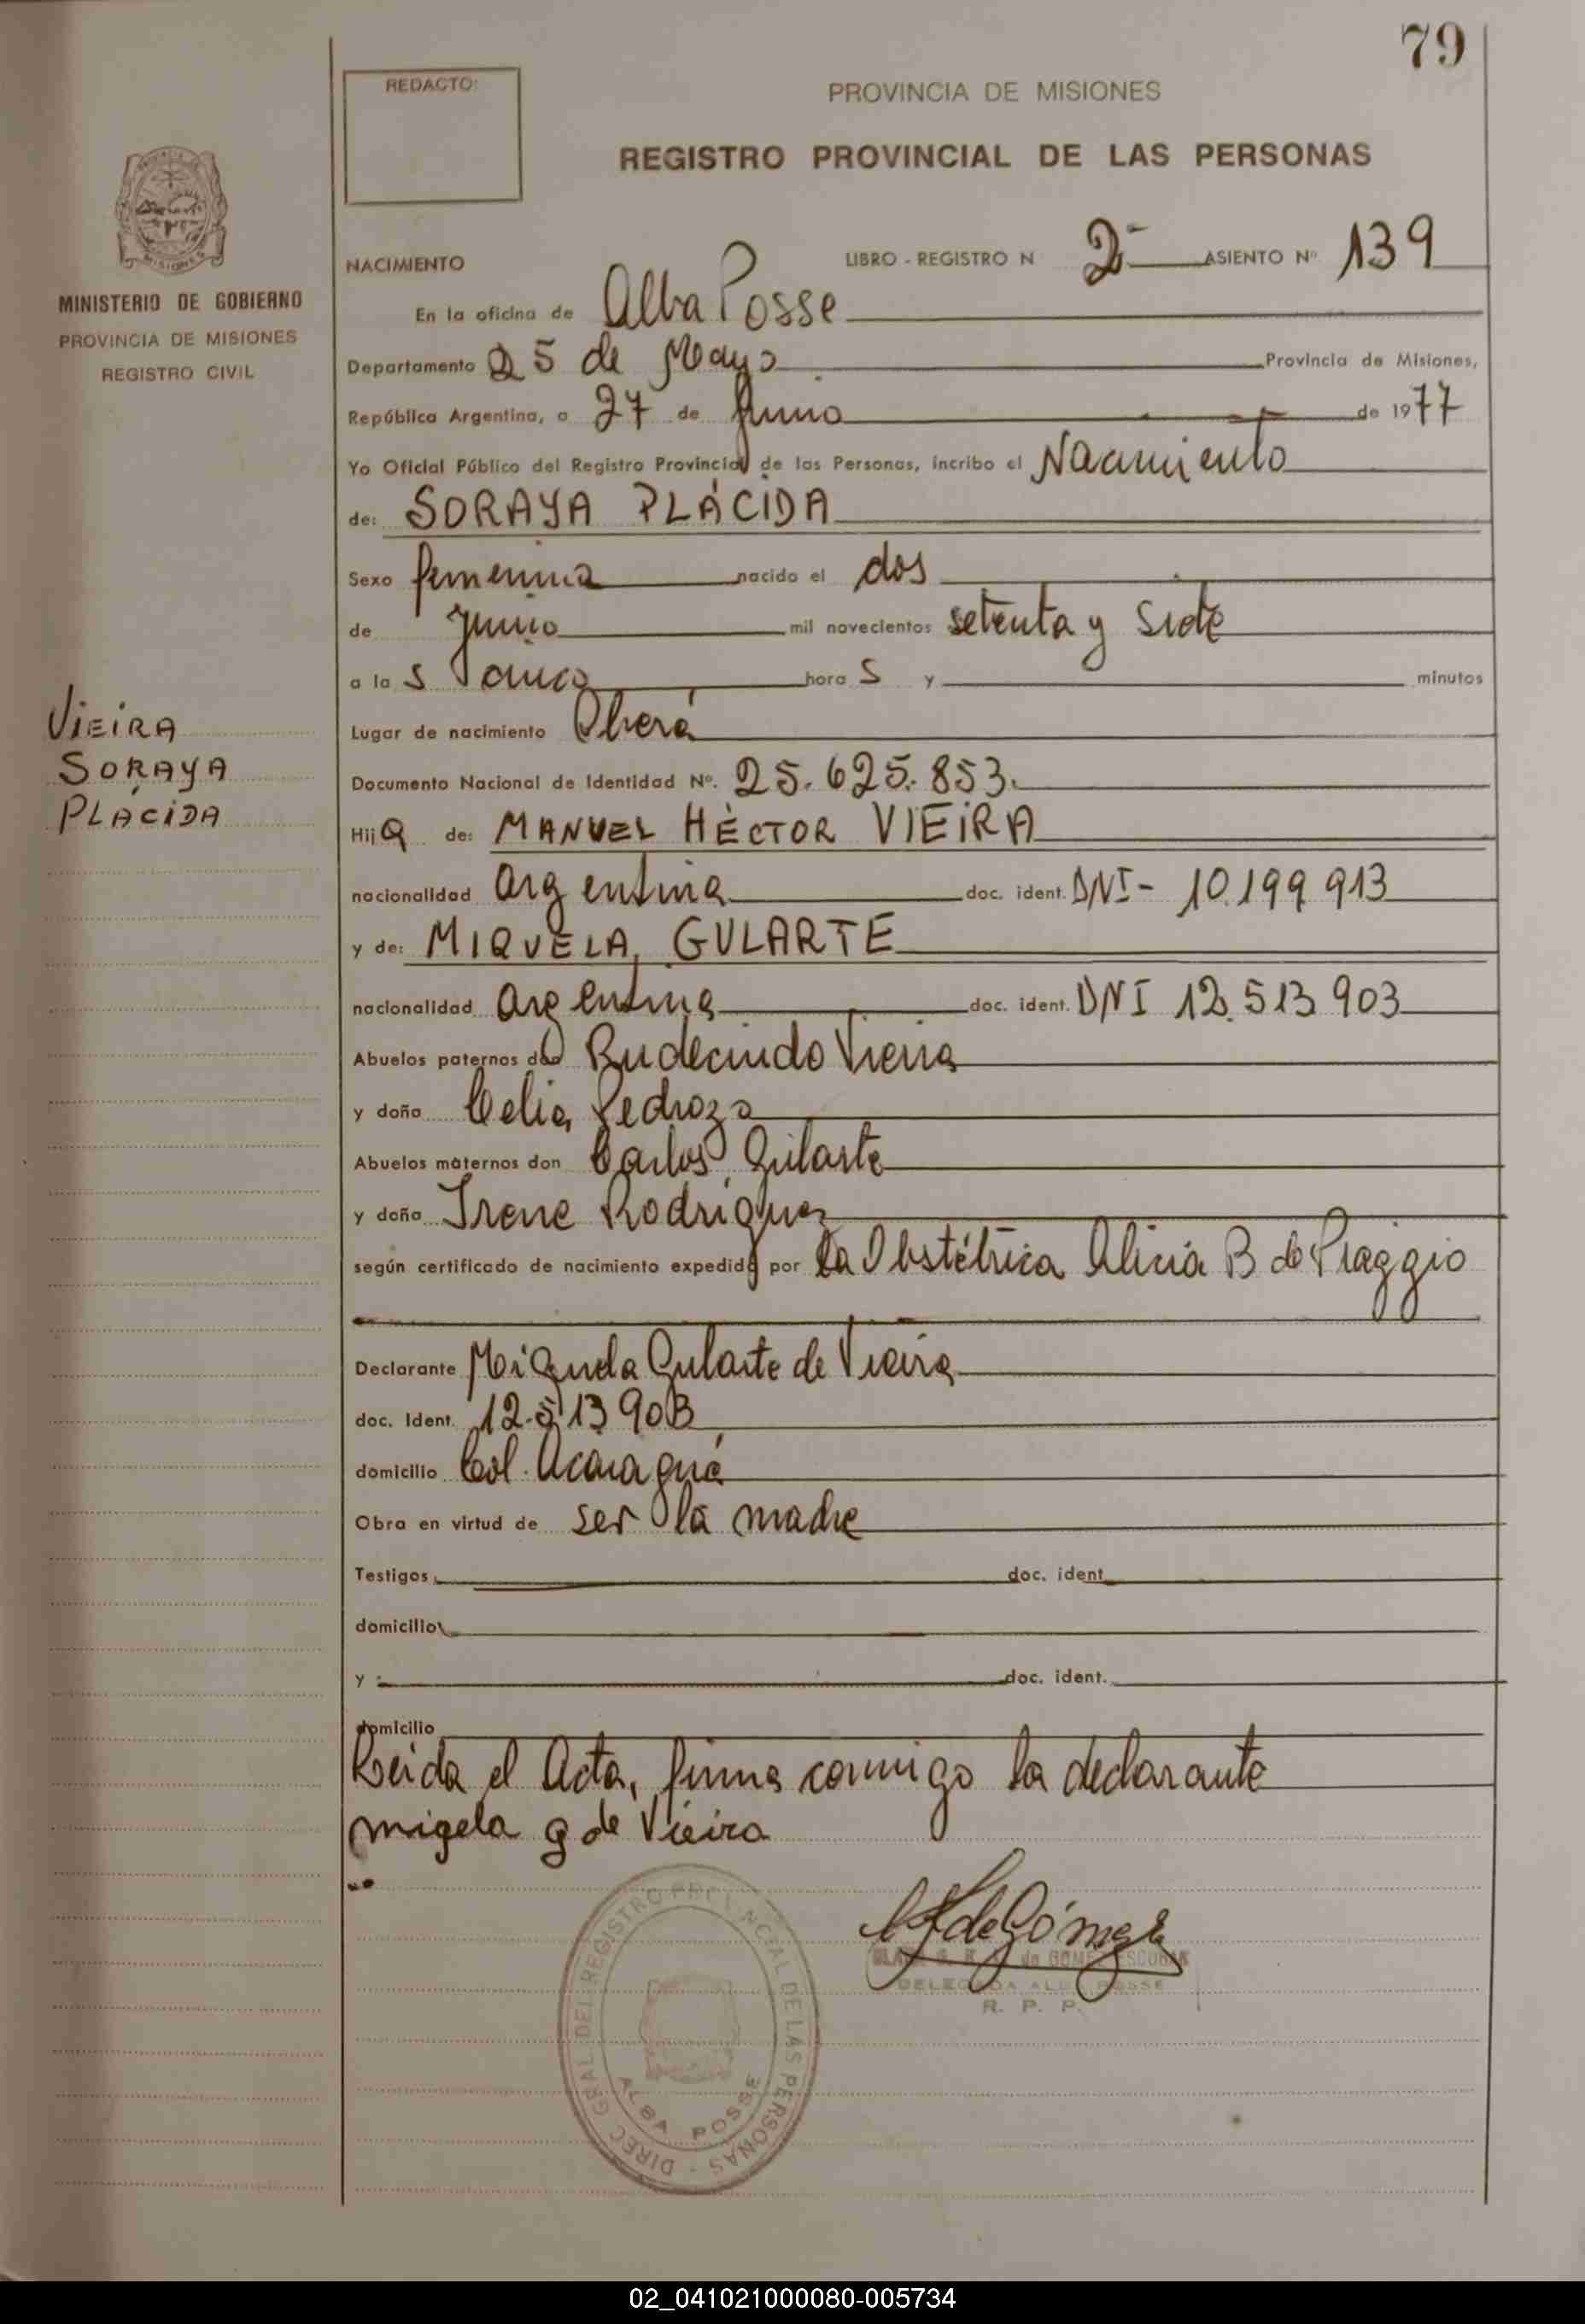 79
REDACTO:
PROVINCIA DE MISIONES
REGISTRO PROVINCIAL DE LAS PERSONAS
MISIONES
MINISTERIO DE GOBIERNO
PROVINCIA DE MISIONES
REGISTRO CIVIL
NACIMIENTO LIBRO - REGISTRO N 2 ASIENTO Nº 139
En la oficina de Alba Posse
Departamento 25 de Mayo Provincia de Misiones,
República Argentina, a 27 de Junio de 1977
Yo Oficial Público del Registro Provincial de las Personas, incribo el Nacimiento
de: SORAYA PLÁCIDA
Sexo femenina nacido el dos
de Junio mil novecientos setenta y siete
a la s cinco hora s y minutos
VIEIRA
SORAYA
PLACIDA
Lugar de nacimiento Oberá
Documento Nacional de Identidad Nº. 25.625.853.
Hij a de: MANUEL HÉCTOR VIEIRA
nacionalidad argentina doc. ident. DNI - 10.199.913
y de: MIQUELA GULARTE
nacionalidad argentina doc. ident. DNI 12.513.903
Abuelos paternos don Rudecindo Vieira
y doña Celia Pedrozo
Abuelos maternos don Carlos Gularte
y doña Irene Rodriguez
según certificado de nacimiento expedido por La Obstétrica Alicia B de Piaggio
Declarante Miguela Gularte de Vieira
doc. Ident. 12.513.903
domicilio Col. Acaraguá
Obra en virtud de ser la madre
Testigos doc. ident.
domicilio
y doc. ident.
domicilio
Leida el Acta, firma conmigo la declarante
migela g de Vieira
de Gómez
de GOMEZ ESCOBAR
DELEGADA ALBA POSSE
R. P. P.
DIREC. GRAL. DEL REGISTRO PROVINCIAL DE LAS PERSONAS
ALBA POSSE
02_041021000080-005734